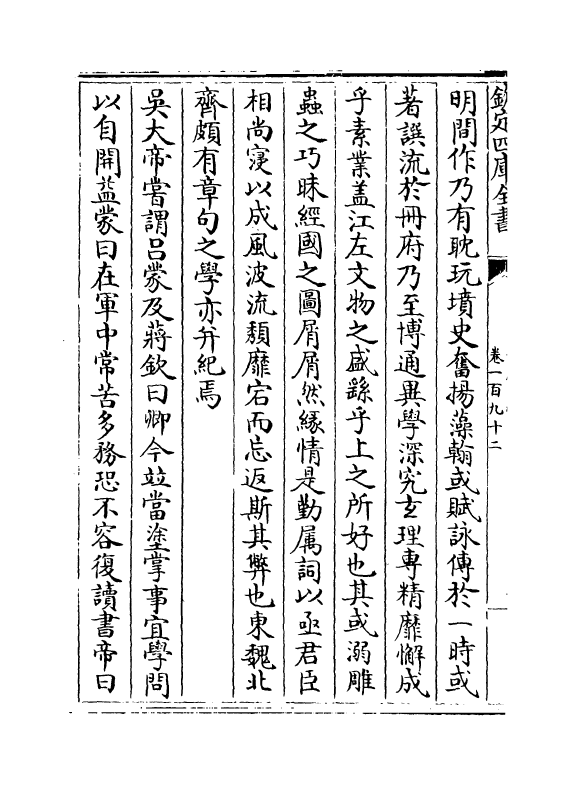 欽定四庫全書
卷一百九十二
明間作乃有耽玩墳史奮揚藻翰或賦詠傳於一時或
著譔流於冊府乃至博通異學深究玄理専精靡懈成
乎素業盖江左文物之盛繇乎上之所好也其或溺雕
蟲之巧昧經國之圖屑屑然緣情是勤属詞以亟君臣
相尚寖以成風波流頽靡宕而忘返斯其弊也東魏北
齊頗有章句之學亦并紀焉
吳大帝嘗謂吕蒙及蔣欽曰卿今竝當塗掌事宜學問
以自開益蒙曰在軍中常苦多務恐不容復讀書帝曰